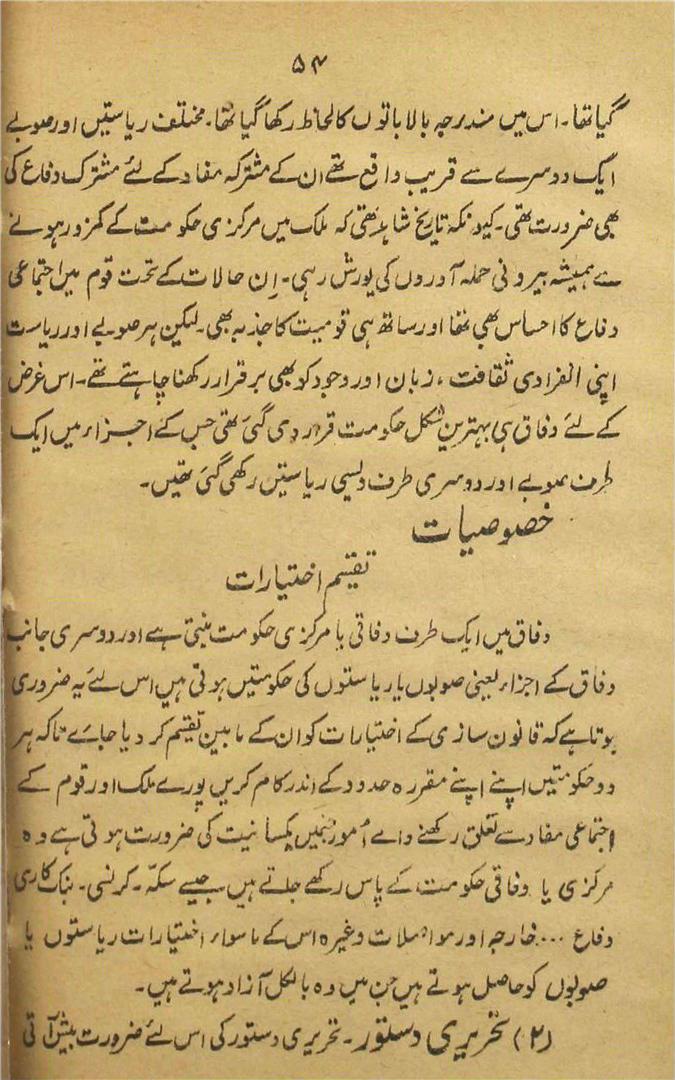 ۵۴
گیا تھا۔ اس میں مندرجہ بالا باتوں کا لحاظ رکھا گیا تھا۔ مختلف ریاستیں اور صوبے
ایک دوسرے سے قریب واقع تھے ان کے مشترکہ مفاد کے لئے مشترک دفاع کی
بھی ضرورت تھی۔ کیونکہ تاریخ شاہد تھی کہ ملک میں مرکزی حکومت کے کمزور ہونے
سے ہمیشہ بیرونی حملہ آوروں کی یورش رہی۔ اِن حالات کے تحت قوم میں اجتماعی
دفاع کا احساس بھی تھا اور ساتھ ہی قومیت کا جذبہ بھی۔ لیکن ہر صوبے اور ریاست
اپنی انفرادی ثقافت ، زبان اور وجود کو بھی برقرار رکھنا چاہتے تھے۔ اس غرض
کے لئے وفاق ہی بہترین شکل حکومت قرار دی گئی تھی جس کے اجزاء میں ایک
طرف صوبے اور دوسری طرف دیسی ریاستیں رکھی گئی تھیں۔
خصوصیات
تقسیم اختیارات
وفاق میں ایک طرف وفاقی یا مرکزی حکومت بنتی ہے اور دوسری جانب
وفاق کے اجزاء یعنی صوبوں یا ریاستوں کی حکومتیں ہوتی ہیں اس لئے یہ ضروری
ہوتا ہے کہ قانون سازی کے اختیارات کو ان کے مابین تقسیم کر دیا جائے تاکہ ہر
دو حکومتیں اپنے اپنے مقررہ حدود کے اندر کام کریں پورے ملک اور قوم کے
اجتماعی مفاد سے تعلق رکھنے والے اُمور جنمیں یکسانیت کی ضرورت ہوتی ہے وہ
مرکزی یا وفاقی حکومت کے پاس رکھے جاتے ہیں جیسے سکہ۔ کرنسی۔ بنک کاری
دفاع ... خارجہ اور مواصلات وغیرہ اس کے ماسواء اختیارات ریاستوں یا
صوبوں کو حاصل ہوتے ہیں جن میں وہ بالکل آزاد ہوتے ہیں۔
(۲) تحریری دستور۔ تحریری دستور کی اس لئے ضرورت پیش آتی